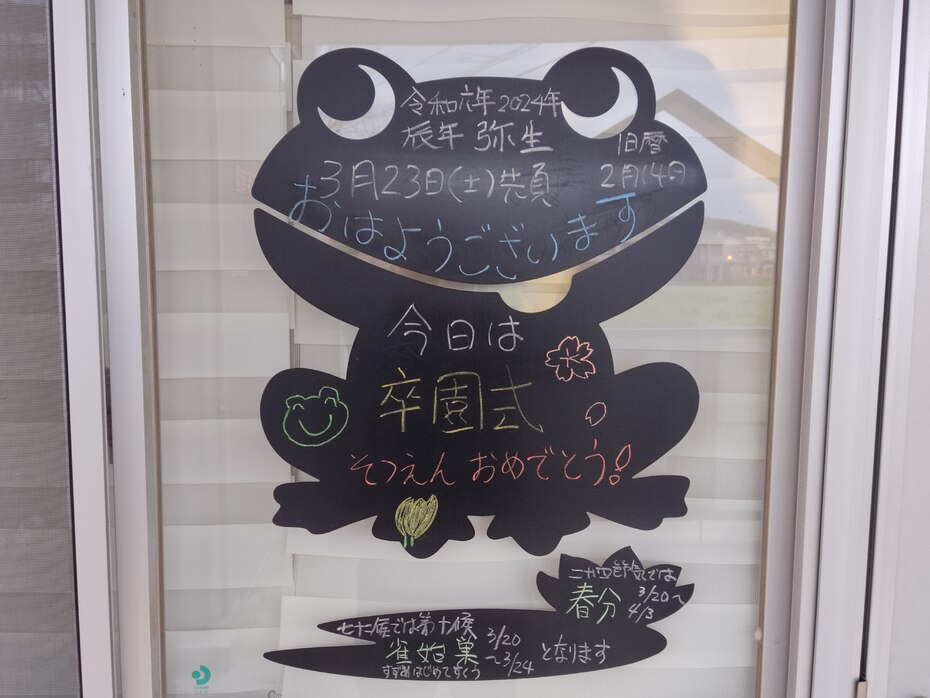 令和六年 2024年
辰年 弥生
旧暦
3月23日(土)先負
2月14日
おはようございます
今日は
卒園式
そつえん おめでとう!
二十四節気では
春分 3/20~
4/3
七十二候では第十候
雀始巣 3/20
~3/24 となります
すずめはじめてすくう